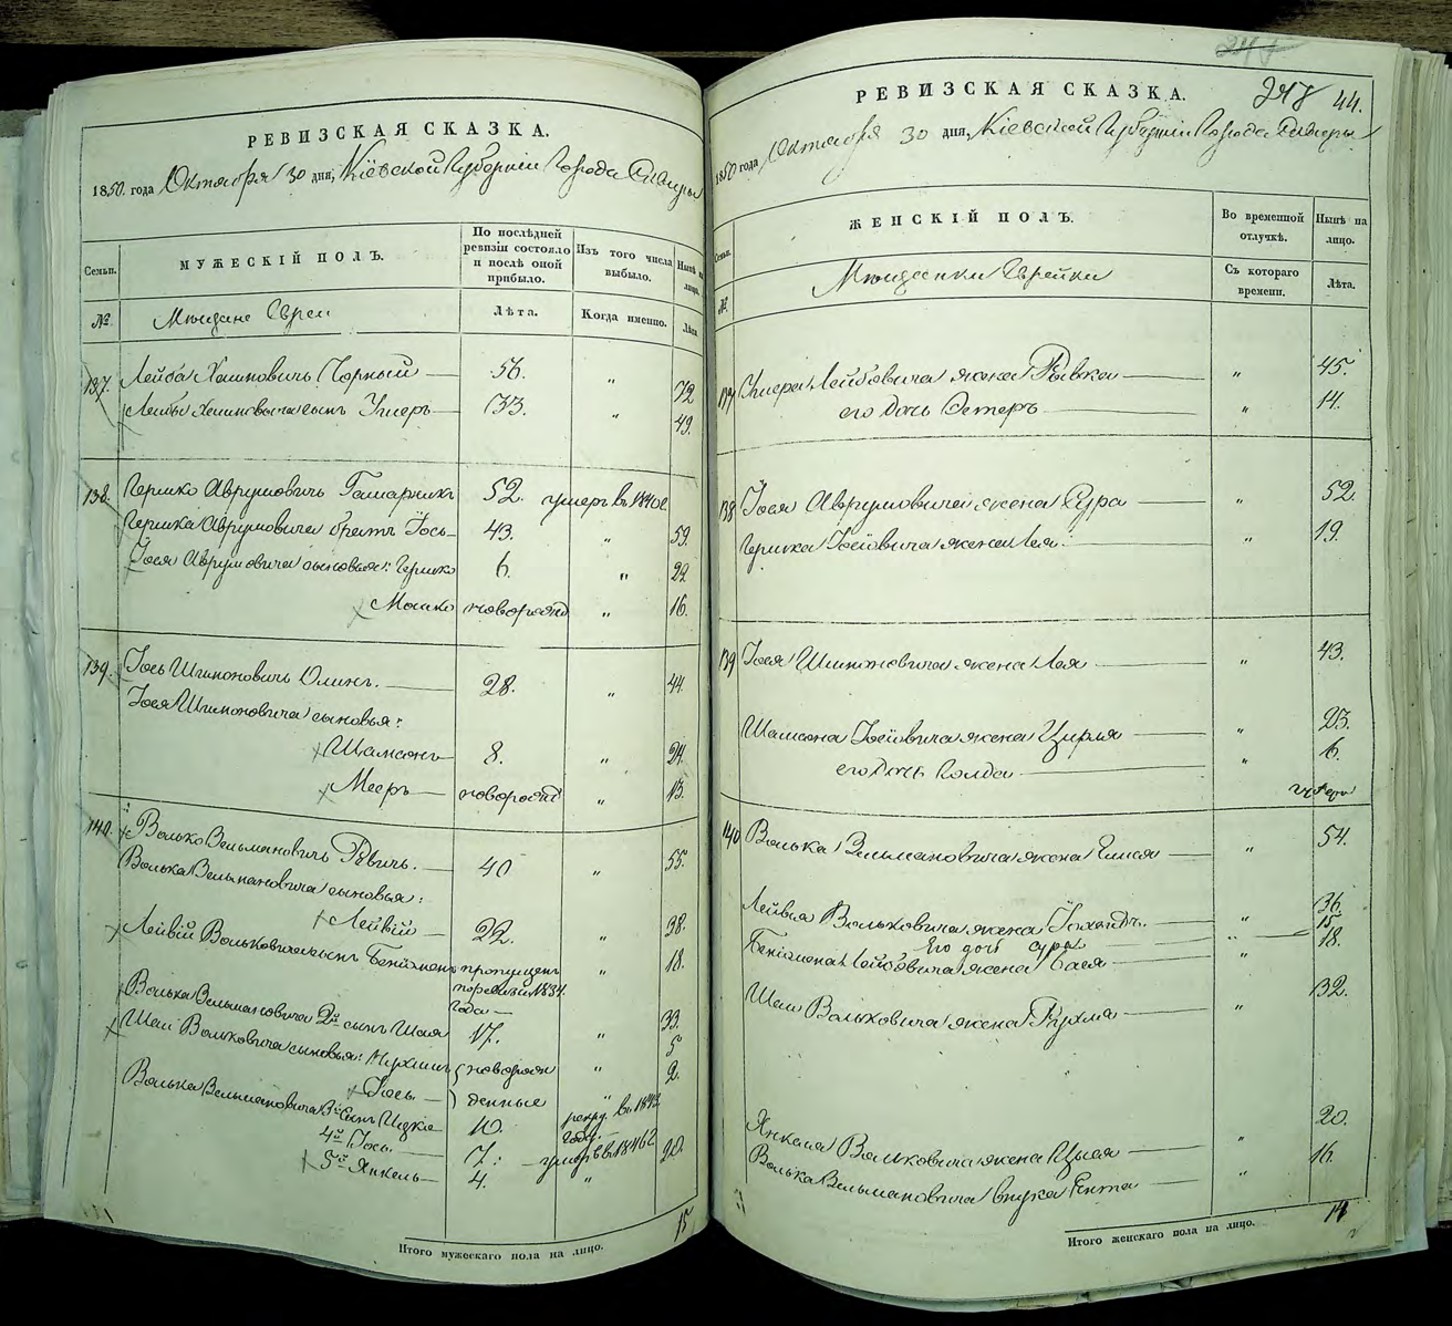 РЕВИЗСКАЯ СКАЗКА.
1850. года Октября 30 дня, Кіевской Губерніи Города Сквиры
Семьи. МУЖЕСКІЙ ПОЛЪ. По послѣдней ревизіи состояло и послѣ оной прибыло. Изъ того числа выбыло. Нынѣ на лицо.
№ Мѣщане Евреи Лѣта. Когда именно. Лѣта
137. Лейба Хаимовичь Чорный 56. " 72
Лейбы Хаимовича сынъ Умеръ 33. " 49.
138. Гершко Аврумовичь 52. умеръ въ 1840 г.
Гершка Аврумовича братъ Іось 43. " 59.
Іося Аврумовича сыновья: Гершко 6. " 22
Мошко новорожд " 16.
139. Іось Шимоновичь Олинъ. 28. " 44.
Іося Шимоновича сыновья:
Шамсонъ 8. " 24.
Мееръ новорожд " 13.
140. Волько Вельмановичь Рѣвичь. 40 " 55.
Волька Вельмановича сыновья:
Лейвій 22. " 38.
Лейвій Вольковича сынъ Беніоменъ пропущенъ " 18.
по ревизіи 1834
года
Волька Вельмановича 2й сынъ Шая 17. " 33.
Шаи Вольковича сыновья: новорож " 5
Іось денные " 2.
Волька Вельмановича 3й сынъ Ицко 10. рекр. въ 1843
году.
4й Іось 7: умеръ въ 1846 г
5й Янкель 4. " 20.
Итого мужескаго пола на лицо. 15
247
РЕВИЗСКАЯ СКАЗКА. 247 44.
1850 года Октября 30 дня, Кіевской Губерніи Города Сквиры
Семьи. ЖЕНСКІЙ ПОЛЪ. Во временной отлучкѣ. Нынѣ на лицо.
№. Мѣщанки Еврейки Съ котораго времени. Лѣта.
137 Умера Лейбовича жена Рывка " 45.
его дочь Эстеръ " 14.
138 Іося Аврумовича жена Сура " 52.
Гершка Іосіовича жена Лея " 19.
139 Іося Шимоновича жена Лея " 43.
Шамсона Іосіовича жена Цирля " 23.
его дочь Голда " 6.
140 Волька Вельмановича жена " 54.
Лейвія Вольковича жена " 36.
Его дочь Сура " 15
Беніомена Лейбовича жена Бася " 18.
Шаи Вольковича жена Рухля " 32.
Янкеля Вольковича жена " 20.
Волька Вельмановича внука Ента " 16.
Итого женскаго пола на лицо. 14